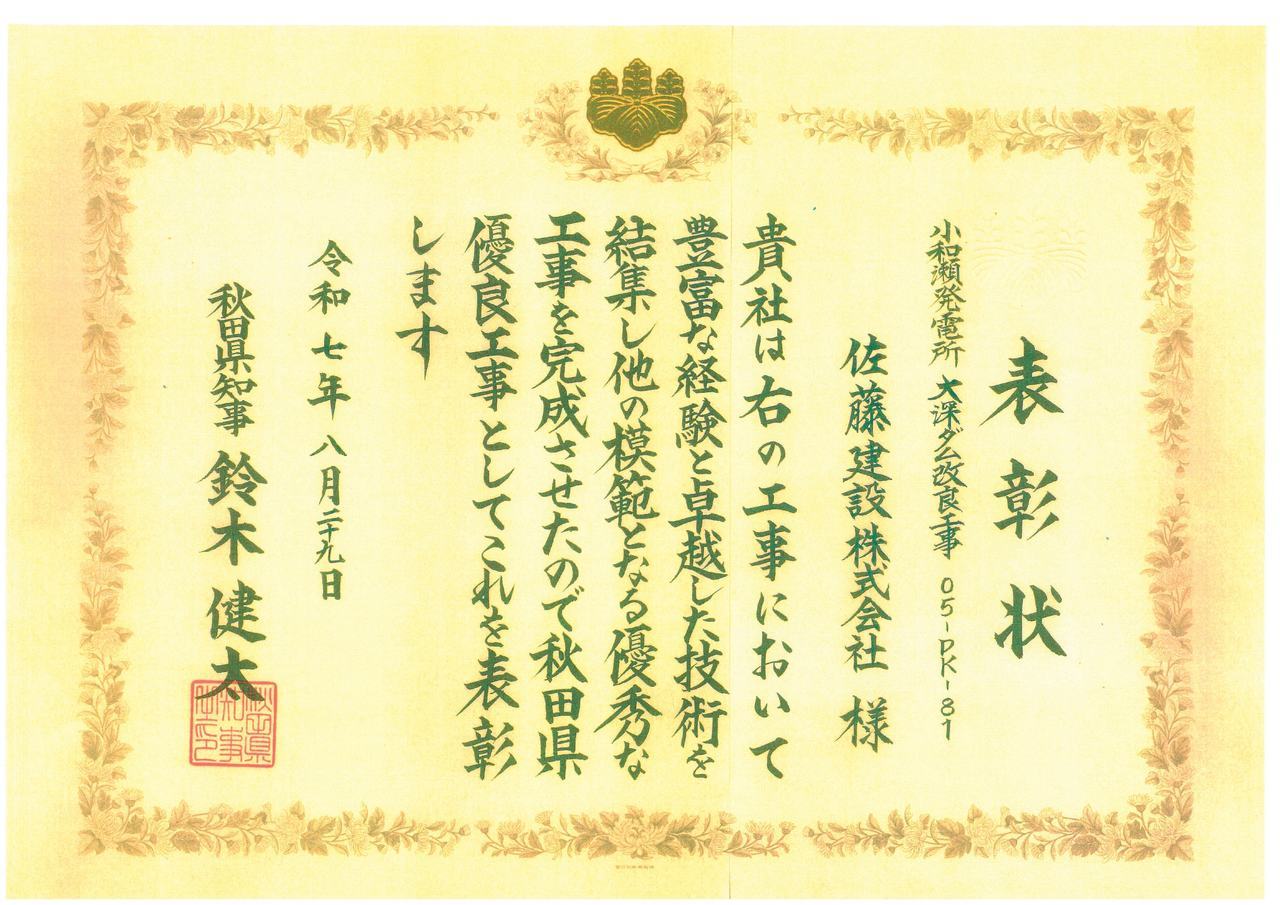 表彰状
小和瀬発電所 大深ダム改良工事 05-DK-81
佐藤建設株式会社 様
貴社は右の工事において
豊富な経験と卓越した技術を
結集し他の模範となる優秀な
工事を完成させたので秋田県
優良工事としてこれを表彰
します
令和七年八月二十九日
秋田県知事 鈴木健太
秋田県知事之印